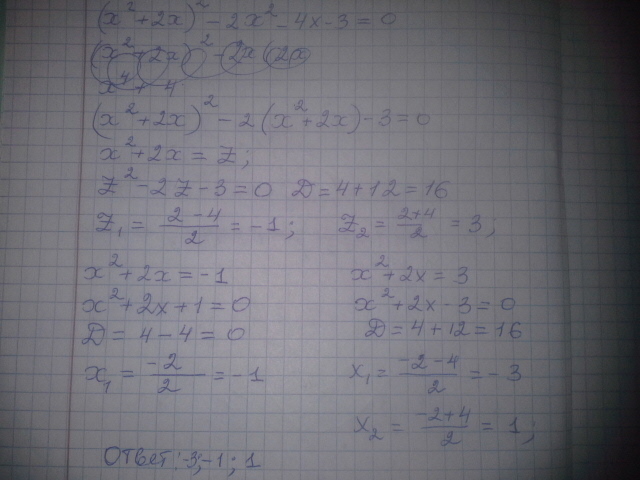 (x² + 2x)² - 2x² - 4x - 3 = 0
(x² + 2x)² - 2x (2x
x⁴ + 4
(x² + 2x)² - 2(x² + 2x) - 3 = 0
x² + 2x = Z;
Z² - 2Z - 3 = 0 D = 4 + 12 = 16
Z₁ = (2 - 4)/2 = -1; Z₂ = (2+4)/2 = 3;
x² + 2x = -1 x² + 2x = 3
x² + 2x + 1 = 0 x² + 2x - 3 = 0
D = 4 - 4 = 0 D = 4 + 12 = 16
x₁ = -2/2 = -1 x₁ = (-2 - 4)/2 = -3
x₂ = (-2 + 4)/2 = 1;
Ответ: -3; -1; 1